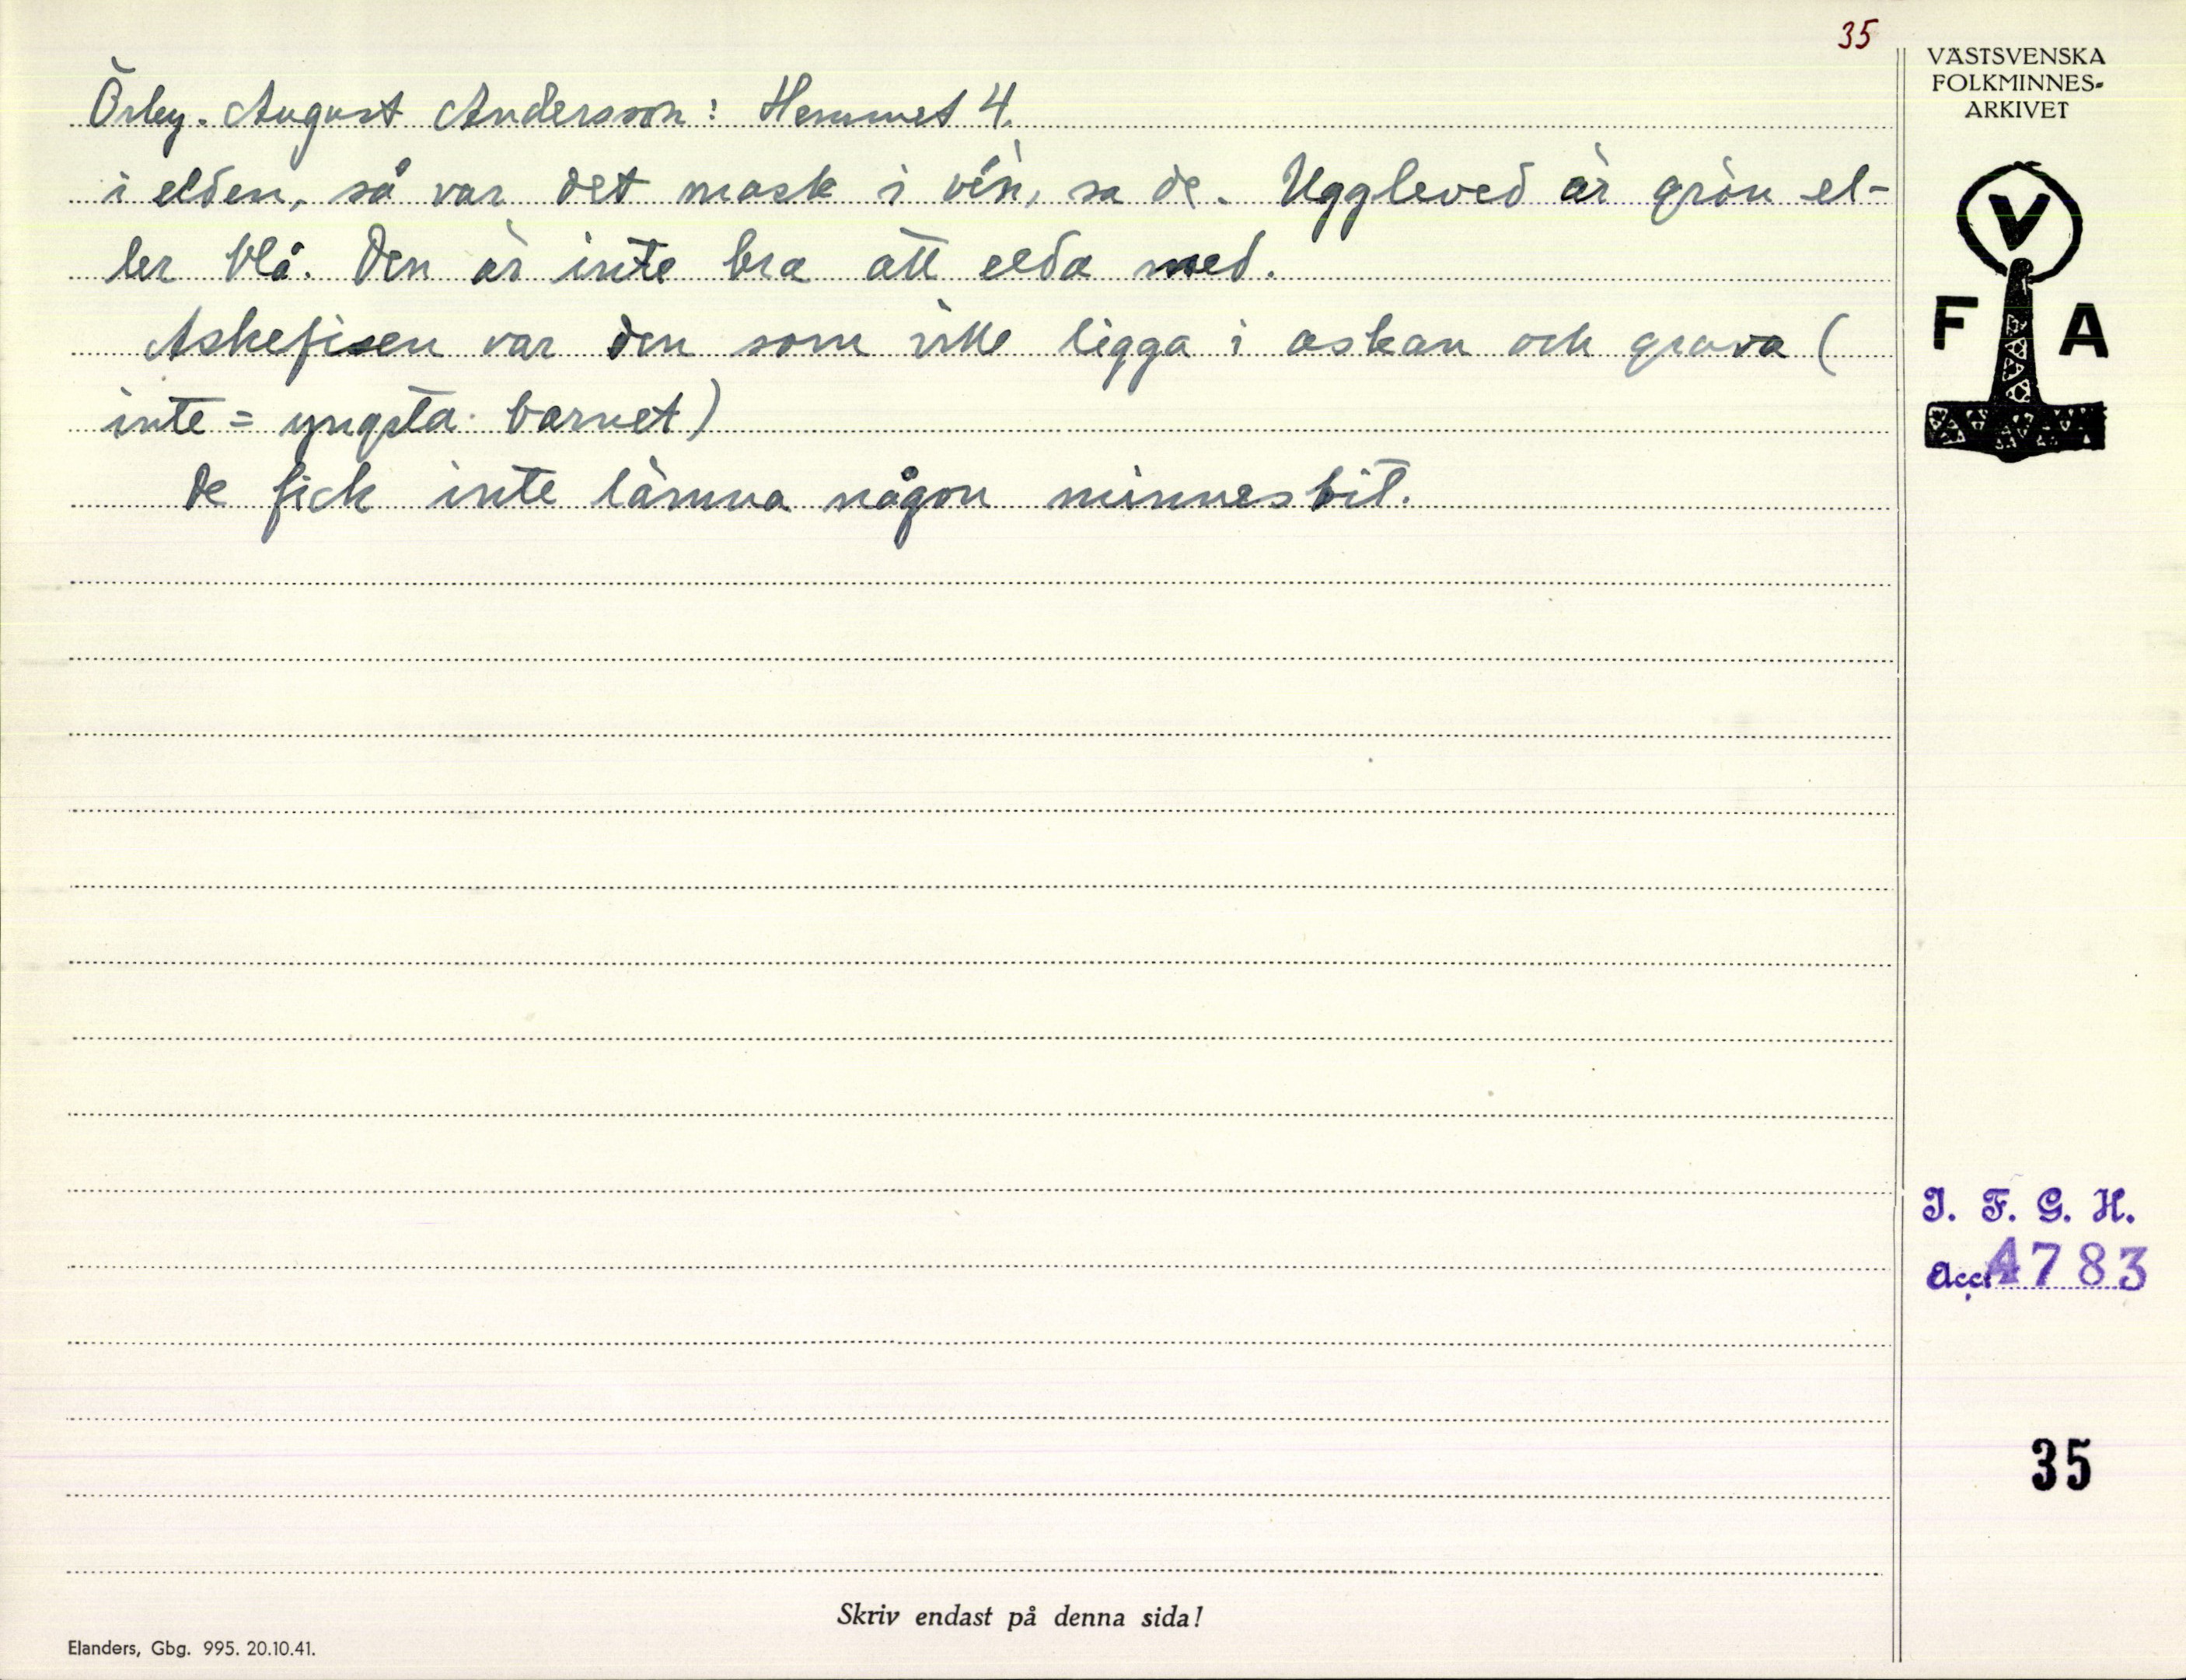 35
Örby. August Andersson: Hemmet 4.
i elden, så var det mask i vén, sa de. Uggleved är grön el-
ler blå. Den är inte bra att elda med.
Askefisen var den som ville ligga i askan och grava (
inte = yngsta barnet)
De fick inte lämna någon minnesbit.
VÄSTSVENSKA
FOLKMINNES-
ARKIVET
V
F A
I. F. G. H.
Acc. 4783
35
Skriv endast på denna sida!
Elanders, Gbg. 995. 20.10.41.